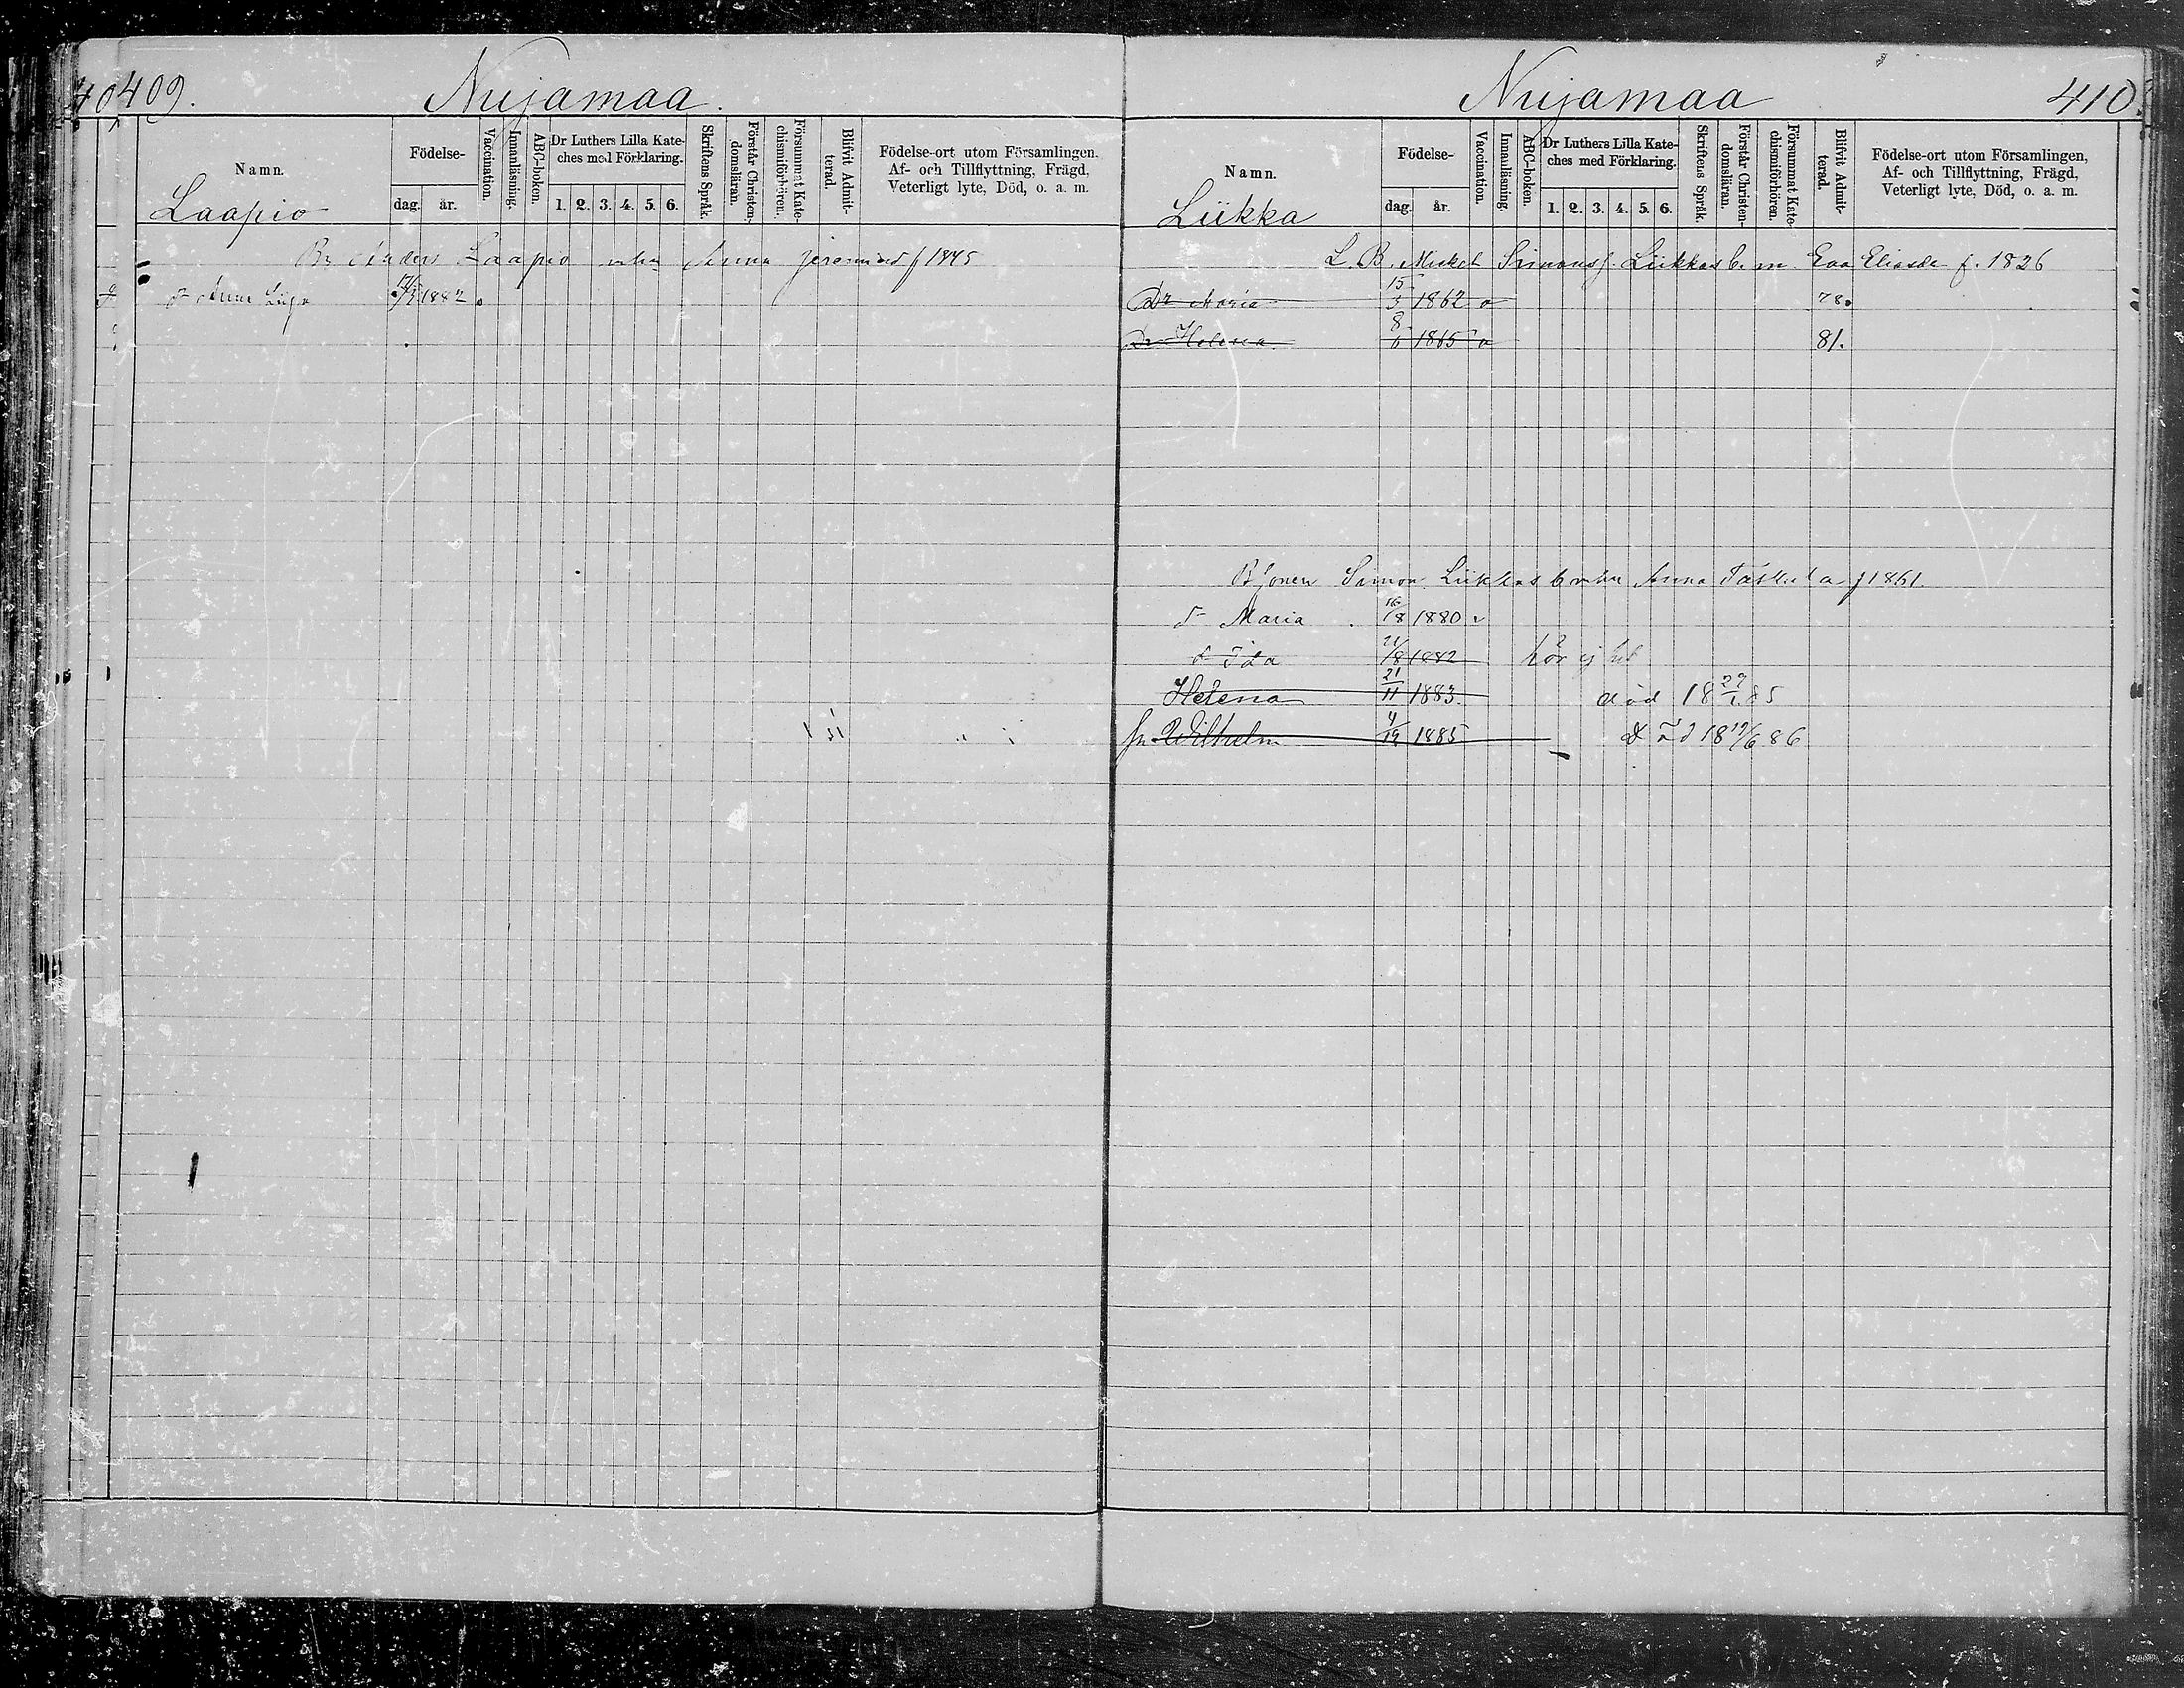 409.
Nuijamaa.
Namn.
Födelse-
dag. år.
Vaccination.
Innanläsning.
ABC-boken.
Dr Luthers Lilla Kateches med Förklaring.
1. 2. 3. 4. 5. 6.
Skriftens Språk.
Förstår Christendomsläran.
Försummat Katechismiförhören.
Blifvit Admitterad.
Födelse-ort utom Församlingen.
Af- och Tillflyttning, Frägd,
Veterligt lyte, Död, o. a. m.
Laapio
Anders Laapio Anna f 1845
d Anna 1882
Nuijamaa
410.
Namn.
Födelse-
dag. år.
Vaccination.
Innanläsning.
ABC-boken.
Dr Luthers Lilla Kateches med Förklaring.
1. 2. 3. 4. 5. 6.
Skriftens Språk.
Förstår Christendomsläran.
Försummat Katechismiförhören.
Blifvit Admitterad.
Födelse-ort utom Församlingen,
Af- och Tillflyttning, Frägd,
Veterligt lyte, Död, o. a. m.
Liikka
L. B. Mickel Simonss. Liikkas b. m. Eva Eliasdr f. 1826
Dr Maria 15/3 1862 78.
Dr Helena 8/6 1865 81.
Simon Liikkas Anna f 1861.
d Maria 16/8 1880
d Ida 21/8 1882 hör ej hit
Helena 21/11 1883. död 18 29/1 85
sn Wilhelm 4/12 1885 Död 18 19/6 86